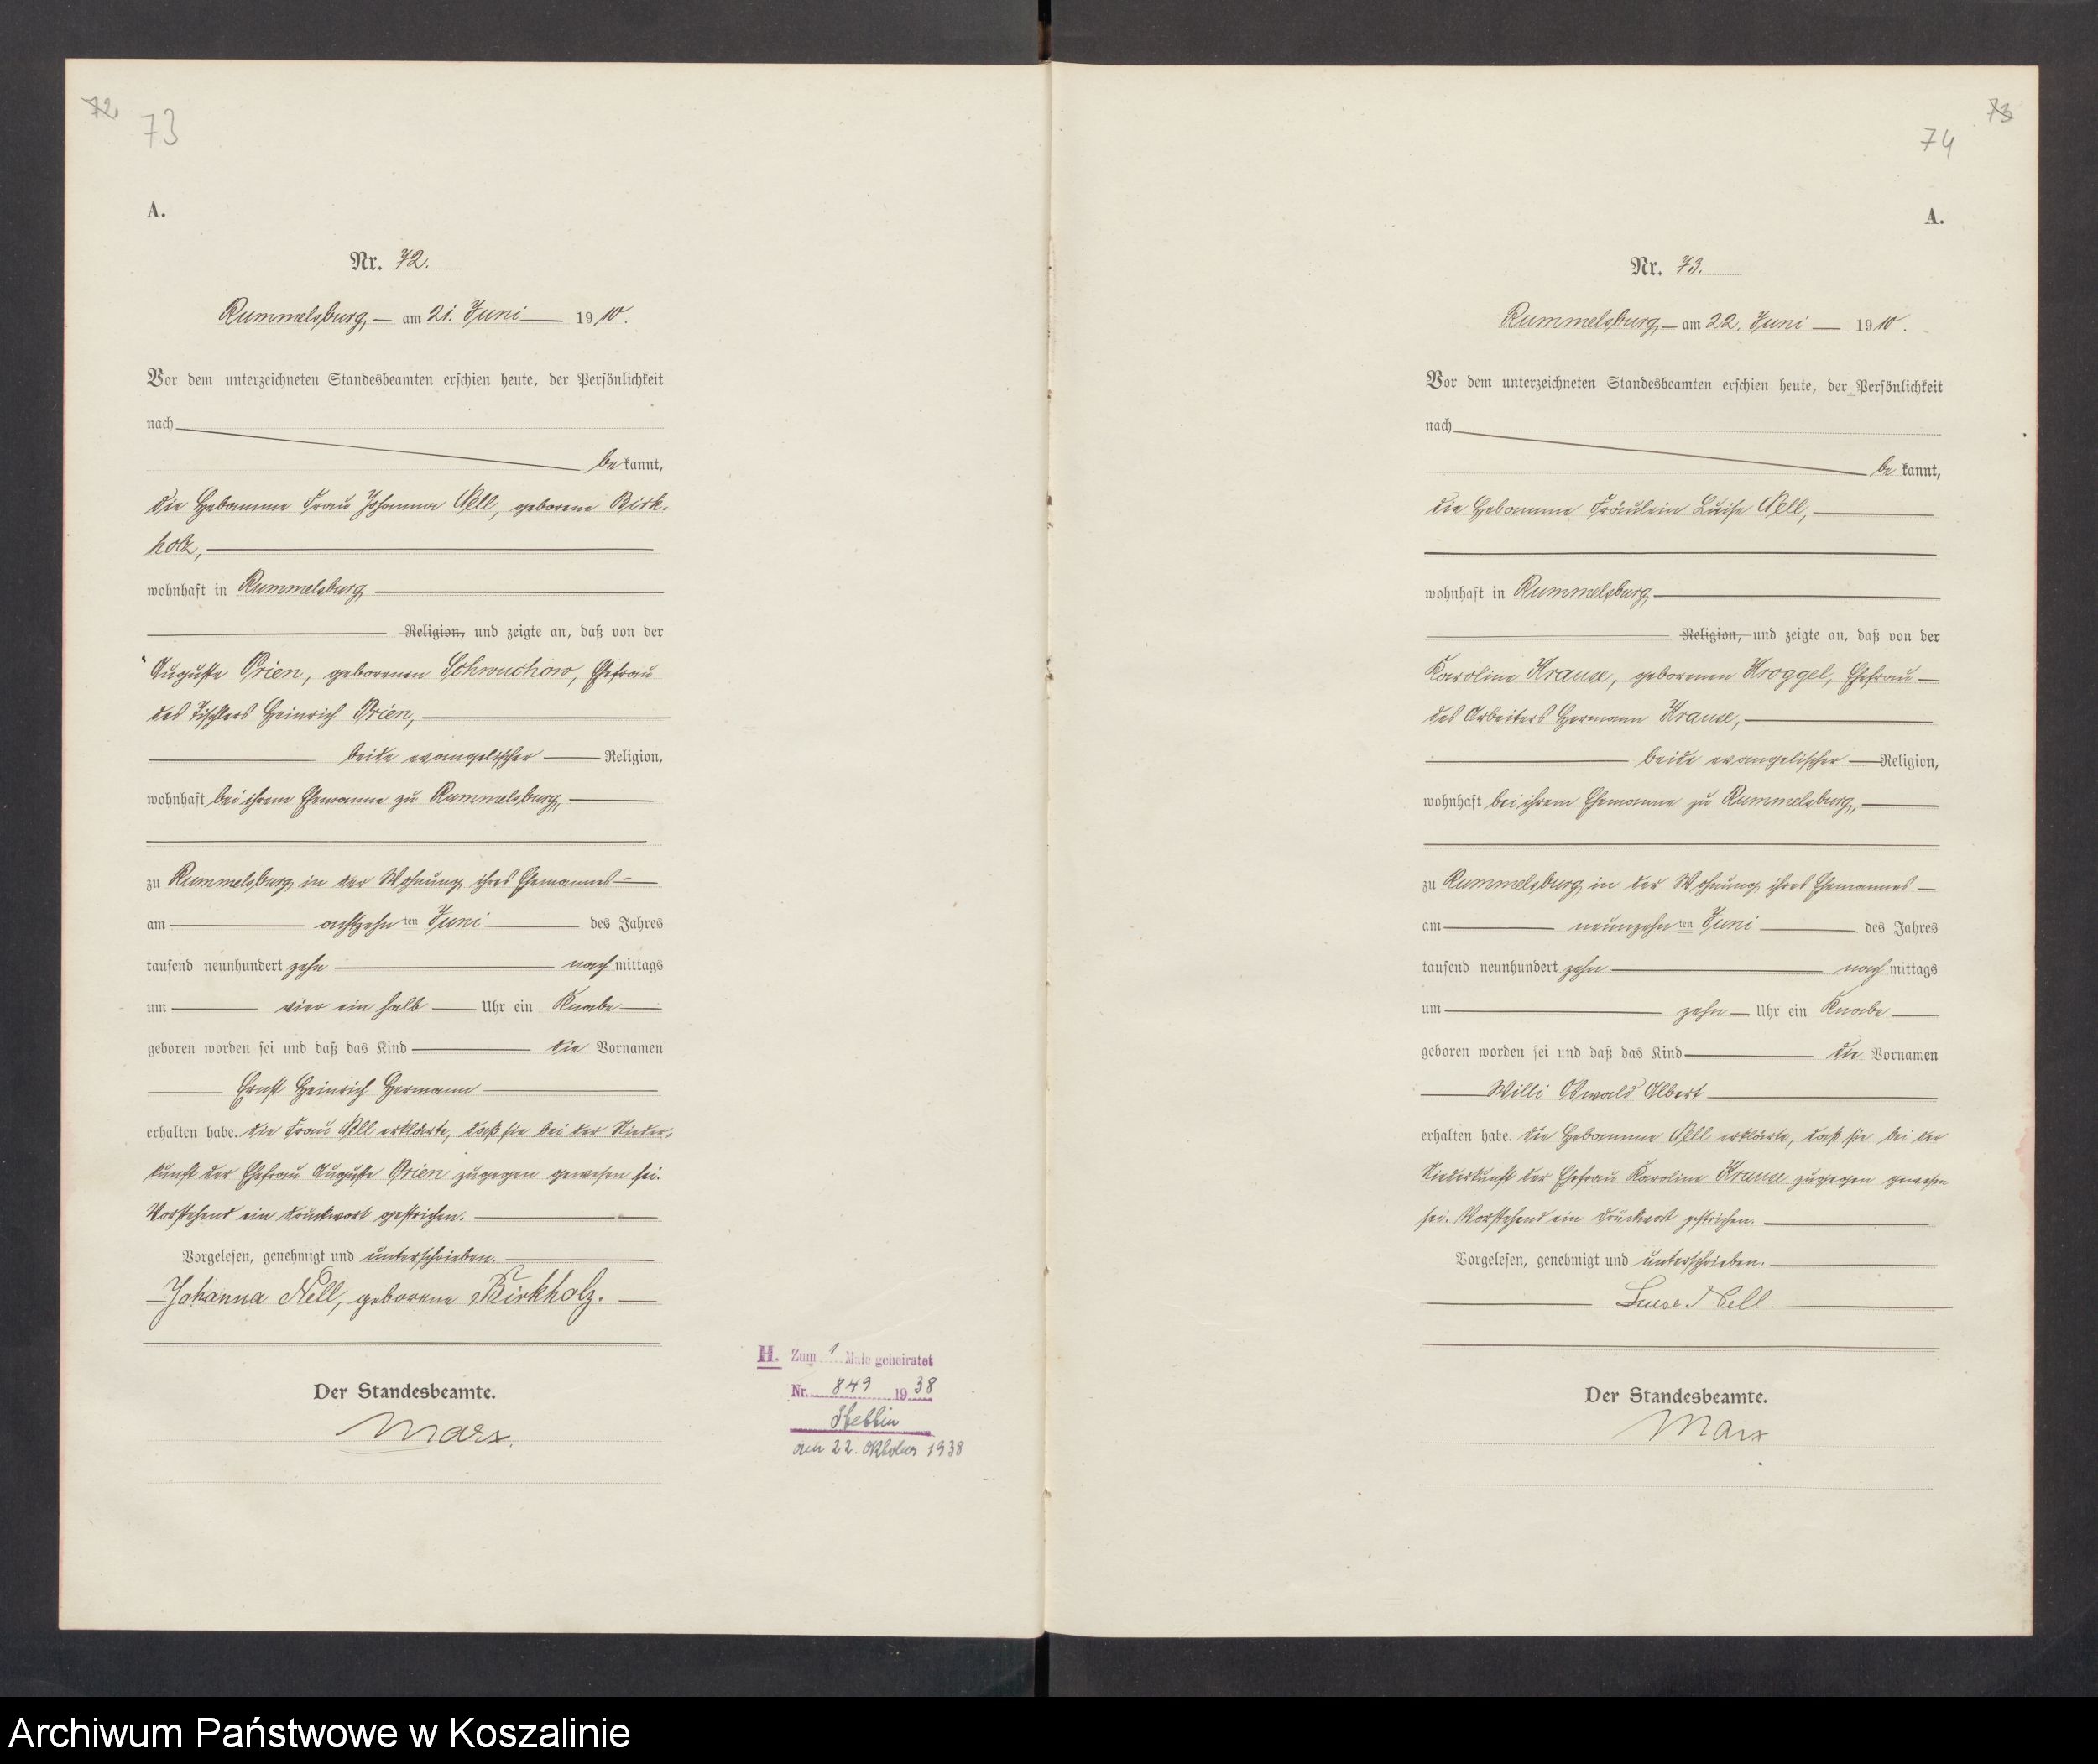 72
73
A.
Nr. 72.
Rummelsburg, am 21. Juni 1910.
Vor dem unterzeichneten Standesbeamten erschien heute, der Persönlichkeit
nach
bekannt,
die Hebamme Frau Johanna Nell, geborene Birk-
holz,
wohnhaft in Rummelsburg
Religion, und zeigte an, daß von der
Auguste Prien, geborenen Schwuchow, Ehefrau
des Tischlers Heinrich Prien,
beide evangelischer Religion,
wohnhaft bei ihrem Ehemanne zu Rummelsburg,
zu Rummelsburg, in der Wohnung ihres Ehemannes
am achtzehnten Juni des Jahres
tausend neunhundert zehn nachmittags
um vier ein halb Uhr ein Knabe
geboren worden sei und daß das Kind die Vornamen
Ernst Heinrich Hermann
erhalten habe. Die Frau Nell erklärte, daß sie bei der Nieder-
kunft der Ehefrau Auguste Prien zugegen gewesen sei.
Vorstehend ein Druckwort gestrichen.
Vorgelesen, genehmigt und unterschrieben.
Johanna Nell, geborene Birkholz.
Der Standesbeamte.
Marx.
H. Zum 1 Male geheiratet
Nr. 849 1938
Stettin
am 22. Oktober 1938
73
74
A.
Nr. 73.
Rummelsburg, am 22. Juni 1910.
Vor dem unterzeichneten Standesbeamten erschien heute, der Persönlichkeit
nach
bekannt,
die Hebamme Fräulein Luise Nell,
wohnhaft in Rummelsburg
Religion, und zeigte an, daß von der
Karoline Krause, geborenen Kroggel, Ehefrau
des Arbeiters Hermann Krause,
beide evangelischer Religion,
wohnhaft bei ihrem Ehemanne zu Rummelsburg,
zu Rummelsburg, in der Wohnung ihres Ehemannes
am neunzehnten Juni des Jahres
tausend neunhundert zehn nachmittags
um zehn Uhr ein Knabe
geboren worden sei und daß das Kind die Vornamen
Willi Oswald Albert
erhalten habe. Die Hebamme Nell erklärte, daß sie bei der
Niederkunft der Ehefrau Karoline Krause zugegen gewesen
sei. Vorstehend ein Druckwort gestrichen.
Vorgelesen, genehmigt und unterschrieben.
Luise Nell.
Der Standesbeamte.
Marx
Archiwum Państwowe w Koszalinie